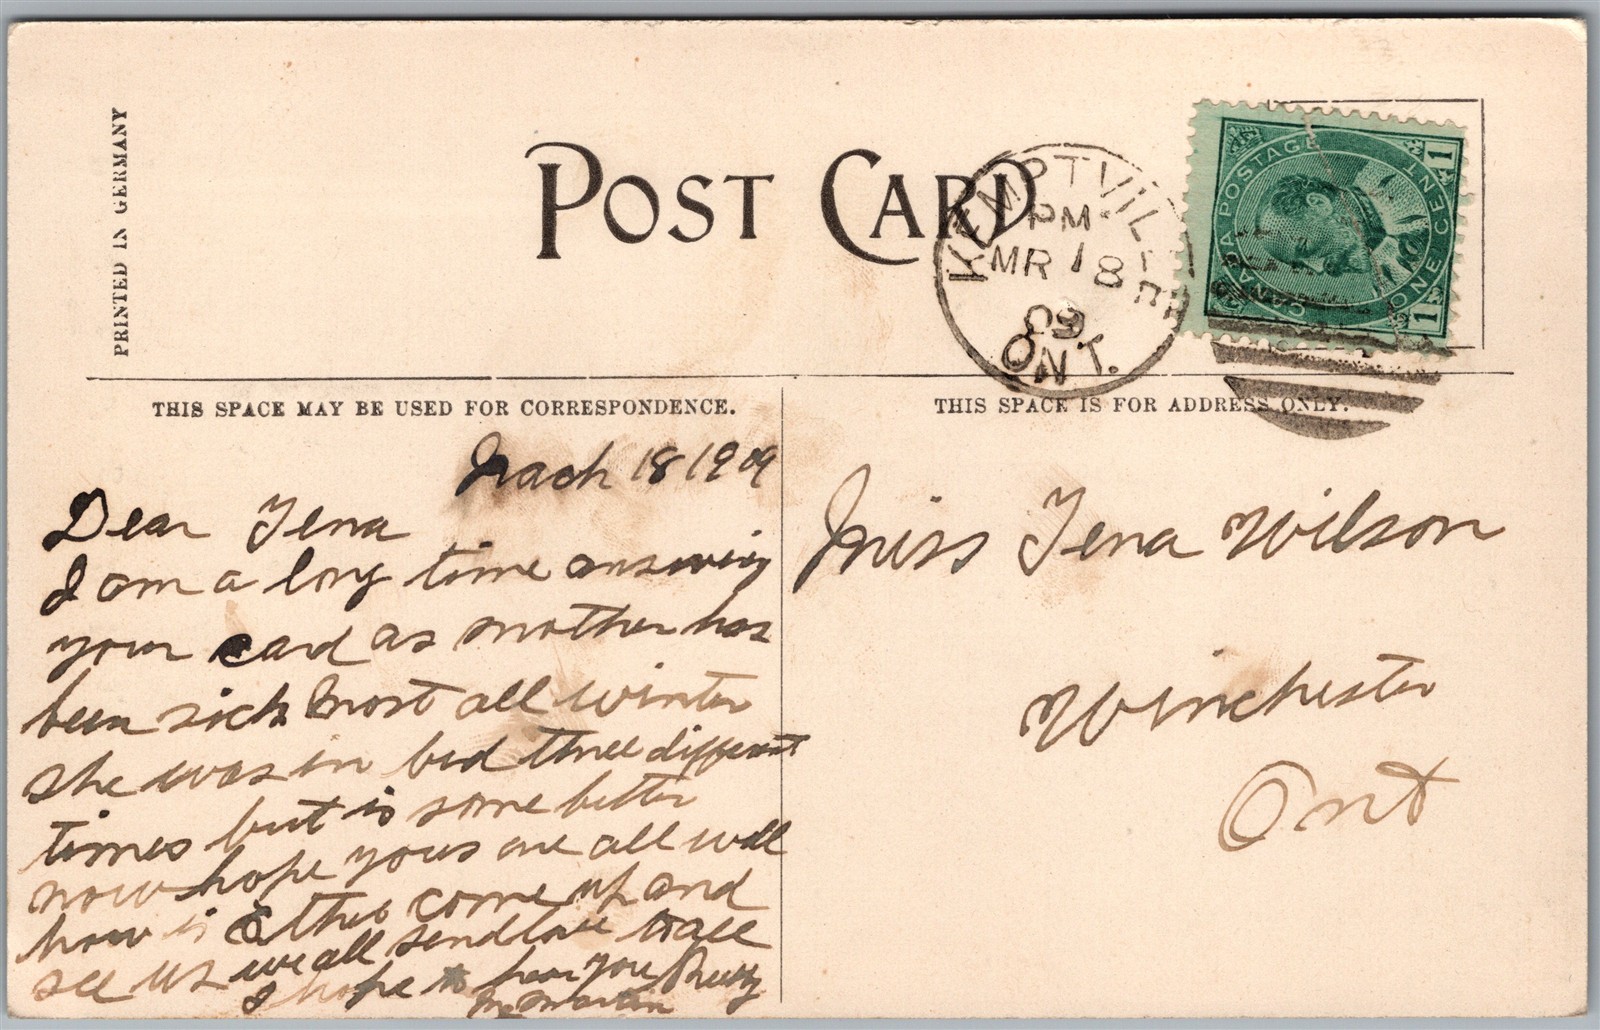 PRINTED IN GERMANY
POST CARD
KEMPTVILLE
PM
MR 18
09
ONT.
CANADA POSTAGE
ONE CENT
1 1
THIS SPACE MAY BE USED FOR CORRESPONDENCE.
THIS SPACE IS FOR ADDRESS ONLY.
Mach 18 1909
Dear Tena
I am a long time answering
your card as mother has
been sick most all winter
she was in bed three different
times but is some better
now hope yous are all well
how is come up and
see us we all send love to all
I hope to hear you
McMartin
Miss Tena Wilson
Winchester
Ont